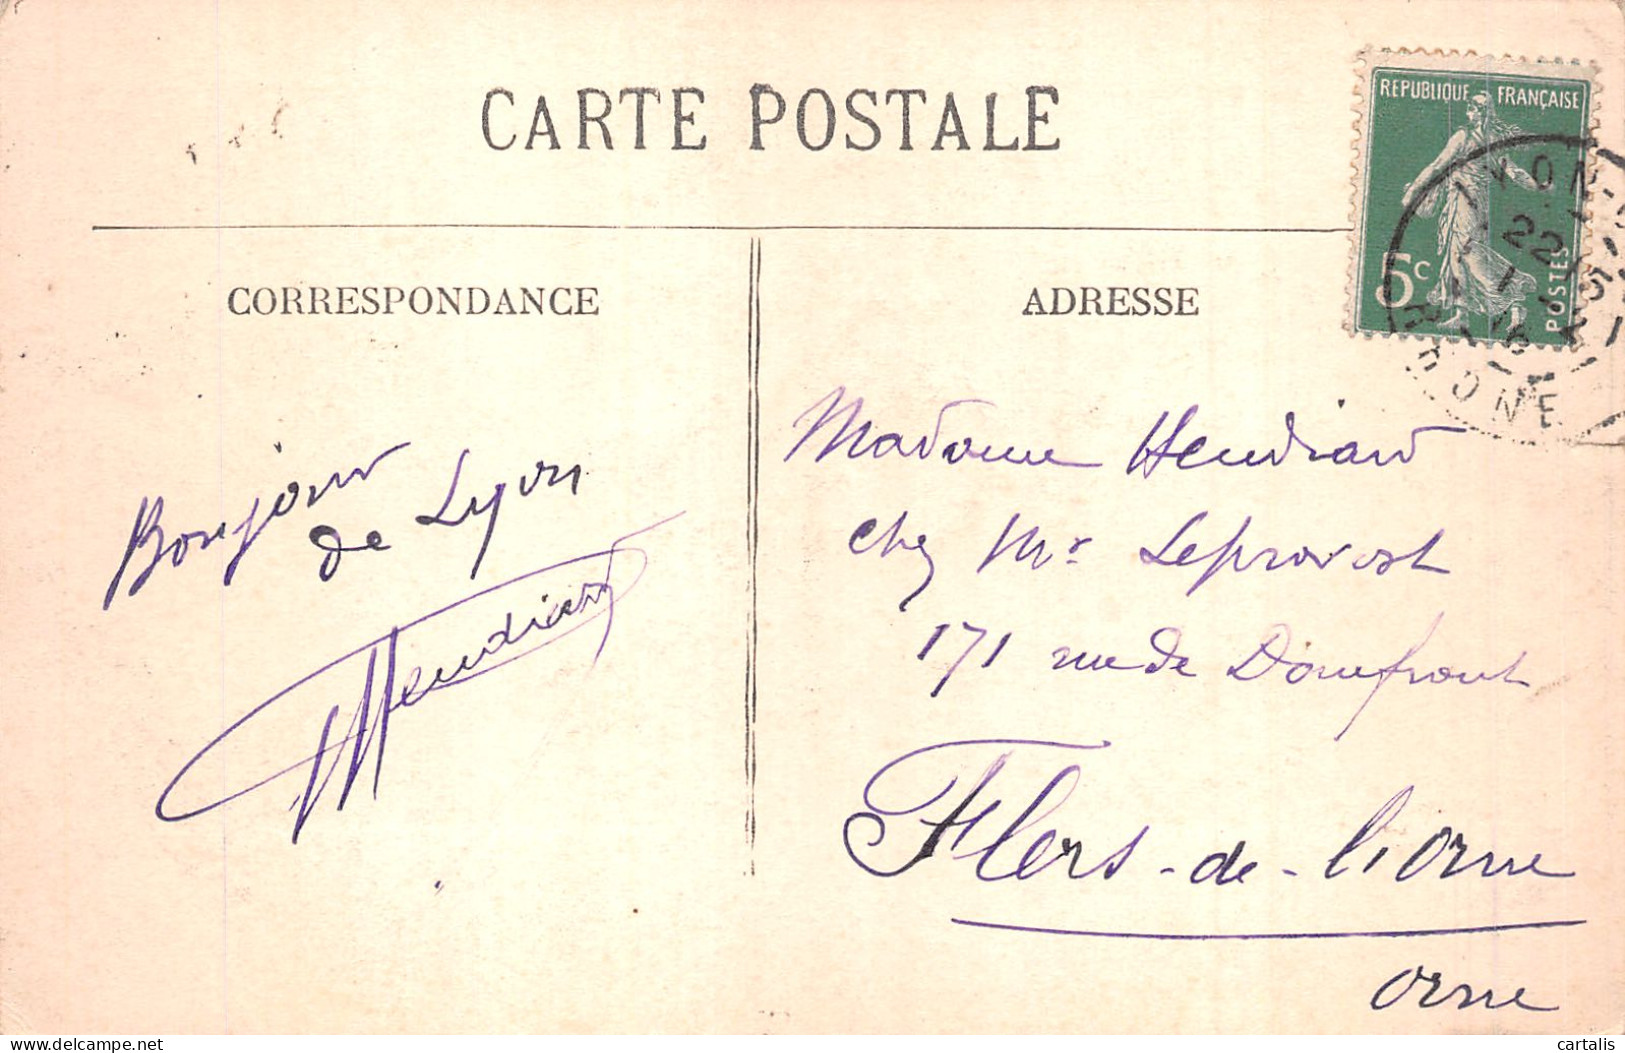 CARTE POSTALE
REPUBLIQUE FRANÇAISE
5c
POSTES
LYON
22
RHONE
CORRESPONDANCE
ADRESSE
Bonjour
de Lyon
Hendiard
Madame Hendiard
chez Mr Leprovost
171 rue de Domfront
Flers-de-l'Orne
Orne
Delcampe.net
cartalis